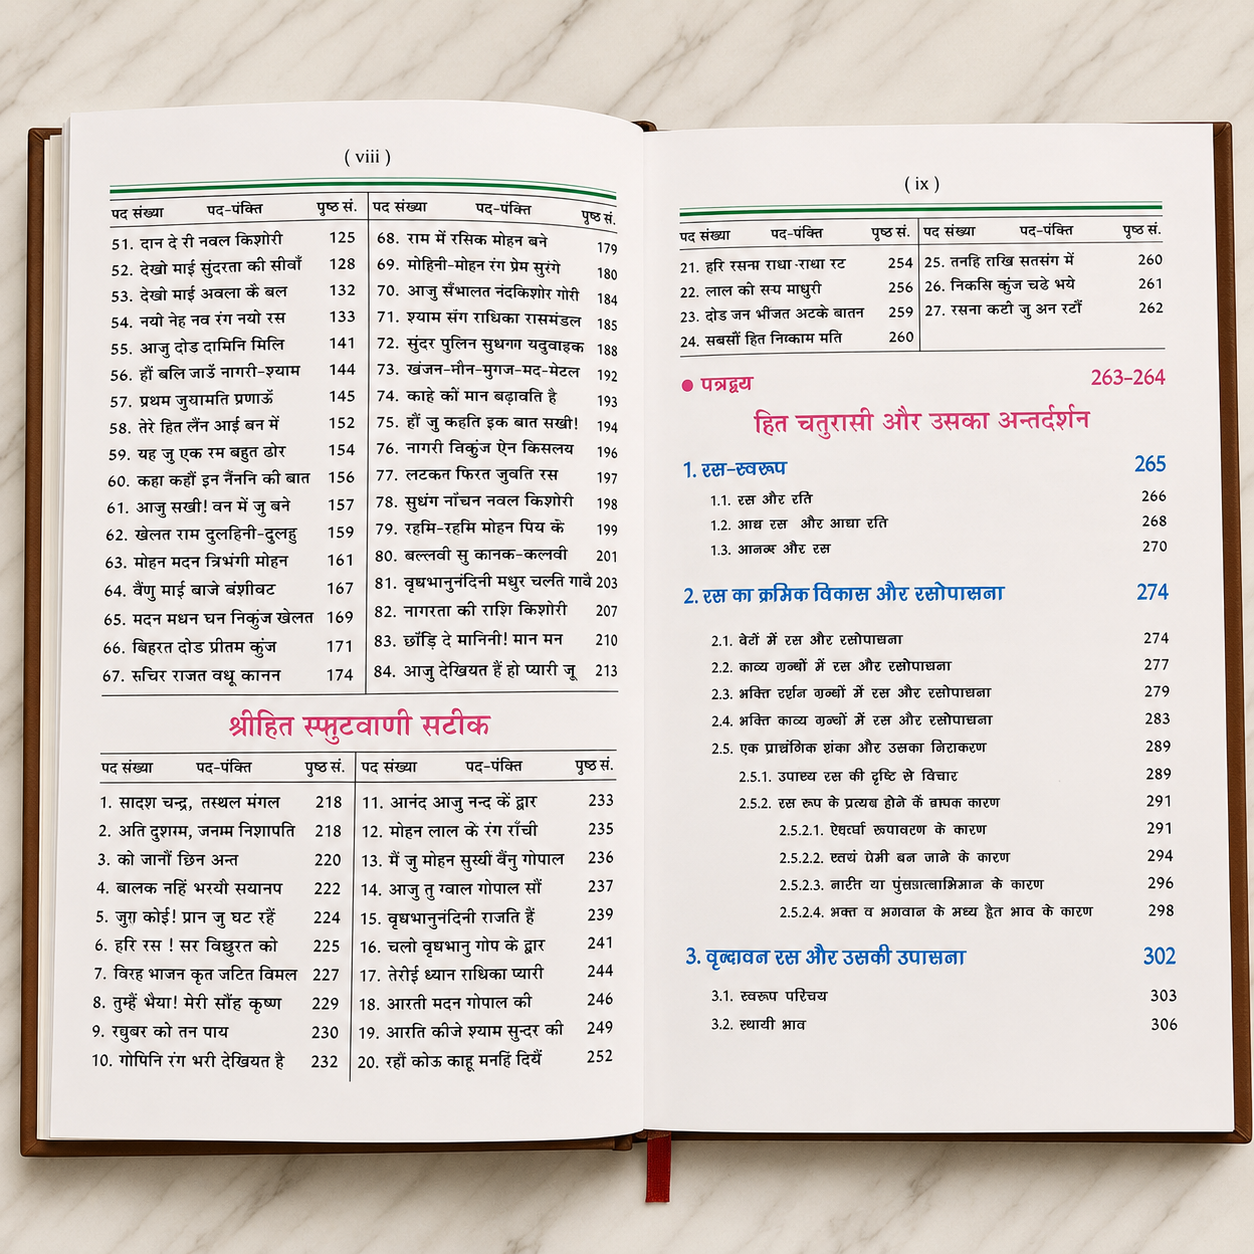 ( viii )
पद संख्या पद-पंक्ति पृष्ठ सं.
51. दान दे री नवल किशोरी 125
52. देखो माई सुंदरता की सीवाँ 128
53. देखो माई अवला कै बल 132
54. नयो नेह नव रंग नयो रस 133
55. आजु दोड दामिनि मिलि 141
56. हौं बलि जाउँ नागरी-श्याम 144
57. प्रथम जुयामति प्रणाऊँ 145
58. तेरे हित लैंन आई बन में 152
59. यह जु एक रम बहुत ढोर 154
60. कहा कहौं इन नैंननि की बात 156
61. आजु सखी! वन में जु बने 157
62. खेलत राम दुलहिनी-दुलहु 159
63. मोहन मदन त्रिभंगी मोहन 161
64. वैंणु माई बाजे बंशीवट 167
65. मदन मधन घन निकुंज खेलत 169
66. बिहरत दोड प्रीतम कुंज 171
67. सचिर राजत वधू कानन 174
पद संख्या पद-पंक्ति पृष्ठ सं.
68. राम में रसिक मोहन बने 179
69. मोहिनी-मोहन रंग प्रेम सुरंगे 180
70. आजु सँभालत नंदकिशोर गोरी 184
71. श्याम संग राधिका रासमंडल 185
72. सुंदर पुलिन सुधगग यदुवाइक 188
73. खंजन-मौन-मुगज-मद-मेटल 192
74. काहे कों मान बढ़ावति है 193
75. हौं जु कहति इक बात सखी! 194
76. नागरी विकुंज ऐन किसलय 196
77. लटकत फिरत जुवति रस 197
78. सुधंग नाँचन नवल किशोरी 198
79. रहमि-रहमि मोहन पिय के 199
80. बल्लवी सु कानक-कलनवी 201
81. वृषभानुनंदिनी मधुर चलति गावै 203
82. नागरता की राशि किशोरी 207
83. छाँड़ि दे मानिनी! मान मन 210
84. आजु देखियत हैं हो प्यारी जू 213
श्रीहित स्फुटवाणी सटीक
पद संख्या पद-पंक्ति पृष्ठ सं.
1. सादश चन्द्र, तस्थल मंगल 218
2. अति दुशम्म, जनम्म निशापति 218
3. को जानौं छिन अन्त 220
4. बालक नहिं भरयौ सयानप 222
5. जुग कोई! प्रान जु घट रहैं 224
6. हरि रस ! सर विछुरत को 225
7. विरह भाजन कृत जटित विमल 227
8. तुम्हैं भैया! मेरी सौंह कृष्ण 229
9. रघुबर को तन पाय 230
10. गोपिनि रंग भरी देखियत है 232
पद संख्या पद-पंक्ति पृष्ठ सं.
11. आनंद आजु नन्द कें द्वार 233
12. मोहन लाल के रंग राँची 235
13. मैं जु मोहन सुख्यीं वैंनु गोपाल 236
14. आजु तु ग्वाल गोपाल सौं 237
15. वृषभानुनंदिनी राजति हैं 239
16. चलो वृषभानु गोप के द्वार 241
17. तेरोई ध्यान राधिका प्यारी 244
18. आरती मदन गोपाल की 246
19. आरति कीजे श्याम सुन्दर की 249
20. रहौं कोऊ काहू मनहिं दियैं 252
( ix )
पद संख्या पद-पंक्ति पृष्ठ सं.
21. हरि रसना राधा-राधा रट 254
22. लाल को सन्प माधुरी 256
23. दोड जन भीजत अटके बातन 259
24. सबसौं हित निष्काम मति 260
पद संख्या पद-पंक्ति पृष्ठ सं.
25. तनहि राखि सतसंग में 260
26. निकसि कुंज चढे भये 261
27. रसना कटी जु अन रटौं 262
● पत्रद्वय 263-264
हित चतुरासी और उसका अन्तर्दर्शन
1. रस-स्वरूप 265
1.1. रस और रति 266
1.2. आध रस और आधा रति 268
1.3. और रस 270
2. रस का क्रमिक विकास और रसोपासना 274
2.1. में रस और रसोपाद्यना 274
2.2. काव्य ग्रन्थों में रस और रसोपाद्यना 277
2.3. भक्ति दर्शन ग्रन्थों में रस और रसोपाद्यना 279
2.4. भक्ति काव्य ग्रन्थों में रस और रसोपाद्यना 283
2.5. एक प्राद्यंगिक शंका और उसका निराकरण 289
2.5.1. उपाद्य रस की दृष्टि से विचार 289
2.5.2. रस रूप के प्रत्यब होने कें बापक कारण 291
2.5.2.1. रूपावरण के कारण 291
2.5.2.2. प्रेमी बन जाने के कारण 294
2.5.2.3. या के कारण 296
2.5.2.4. भक्त व भगवान के मध्य द्वैत भाव के कारण 298
3. वृन्दावन रस और उसकी उपासना 302
3.1. स्वरूप परिचय 303
3.2. स्थायी भाव 306